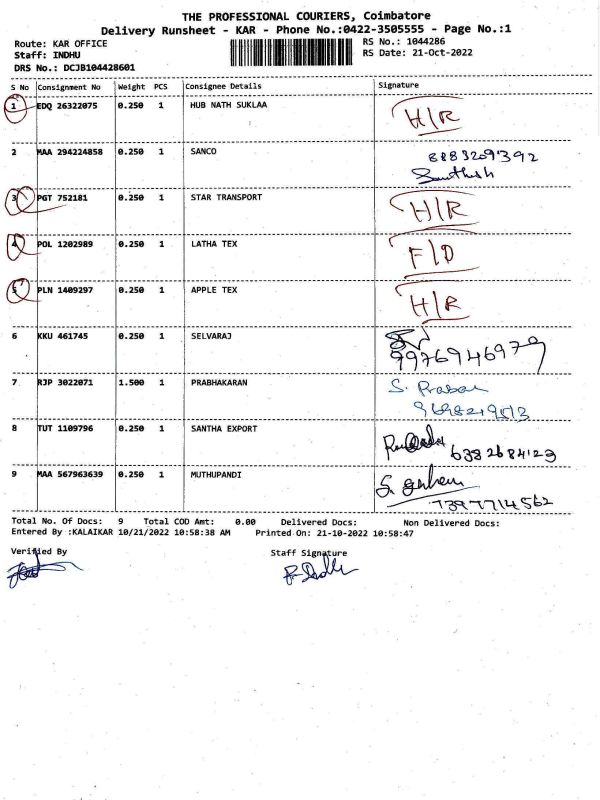 THE PROFESSIONAL COURIERS, Coimbatore
Delivery Runsheet - KAR - Phone No.:0422-3505555 - Page No.:1
Route: KAR OFFICE RS No.: 1044286
Staff: INDHU RS Date: 21-Oct-2022
DRS No.: DCJB104428601
S No Consignment No Weight PCS Consignee Details Signature
1 EDQ 26322075 0.250 1 HUB NATH SUKLAA H/R
2 MAA 294224858 0.250 1 SANCO 8883209392
Santhosh
3 PGT 752181 0.250 1 STAR TRANSPORT H/R
4 POL 1202989 0.250 1 LATHA TEX F/D
5 PLN 1409297 0.250 1 APPLE TEX H/R
6 KKU 461745 0.250 1 SELVARAJ
9976946979
7 RJP 3022071 1.500 1 PRABHAKARAN S. Praba
8 TUT 1109796 0.250 1 SANTHA EXPORT 6382684123
9 MAA 567963639 0.250 1 MUTHUPANDI
7397714562
Total No. Of Docs: 9 Total COD Amt: 0.00 Delivered Docs: Non Delivered Docs:
Entered By :KALAIKAR 10/21/2022 10:58:38 AM Printed On: 21-10-2022 10:58:47
Verified By Staff Signature